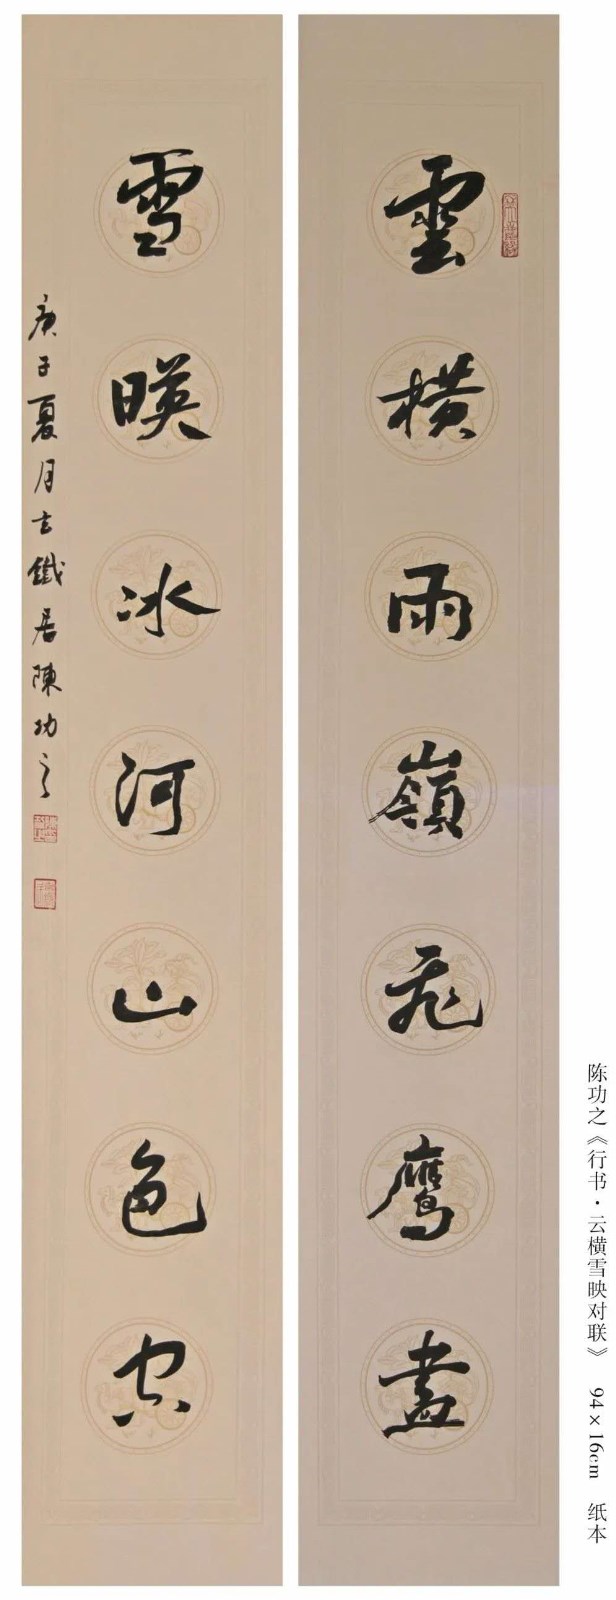 雲橫雨嶺飛鷹盡
雪暎冰河山色
庚子夏月玄鐵居陳功之
陈功之《行书·云横雪映对联》 94×16cm 纸本